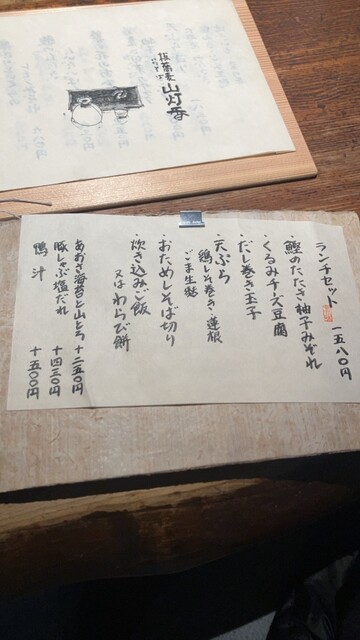 山灯香
ランチセット 一五八〇円
・鰹のたたき柚子みぞれ
・くるみチーズ豆腐
・だし巻き玉子
・天ぷら
鶏しそ巻き・蓮根
ごま生麩
・おためしそば切り
・炊き込みご飯
又はわらび餅
あおさ海苔と山とろ 十二五〇円
豚しゃぶ塩だれ 十四三〇円
鴨汁 十五〇〇円